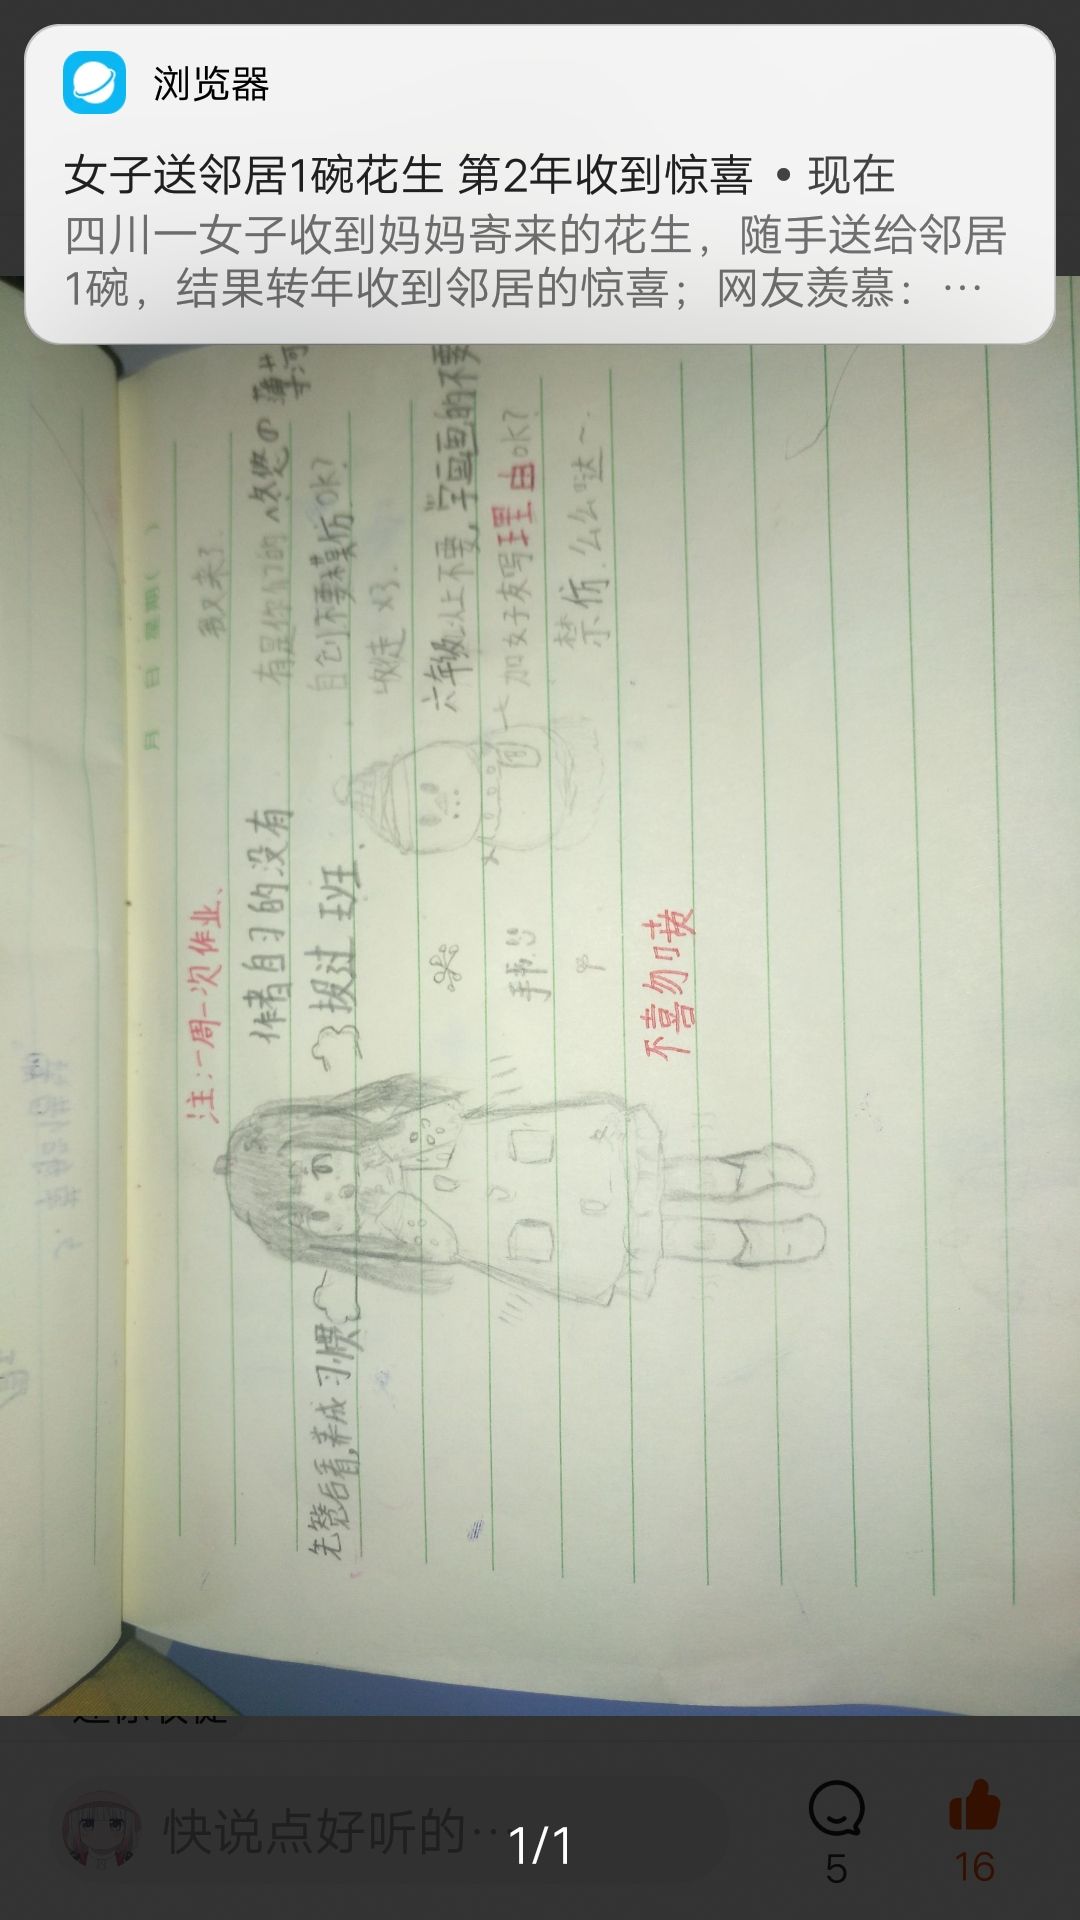 浏览器
女子送邻居1碗花生 第2年收到惊喜 • 现在
四川一女子收到妈妈寄来的花生，随手送给邻居
1碗，结果转年收到邻居的惊喜；网友羡慕：…
月 日 星期( )
我又来了.
有是你们的
自创不要模仿.OK?
收徒 ×3.
六年级以上不要,字画画的不要
加女子友写理由OK?
禁仿.么么哒~.
注:一周一次作业、
作者自习的没有
报过班.
手书
不喜勿喷
先赞后看,养成习惯
快说点好听的…
1/1
5
16